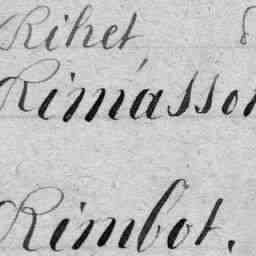 Rihet,
Rimásson
Rimbot.